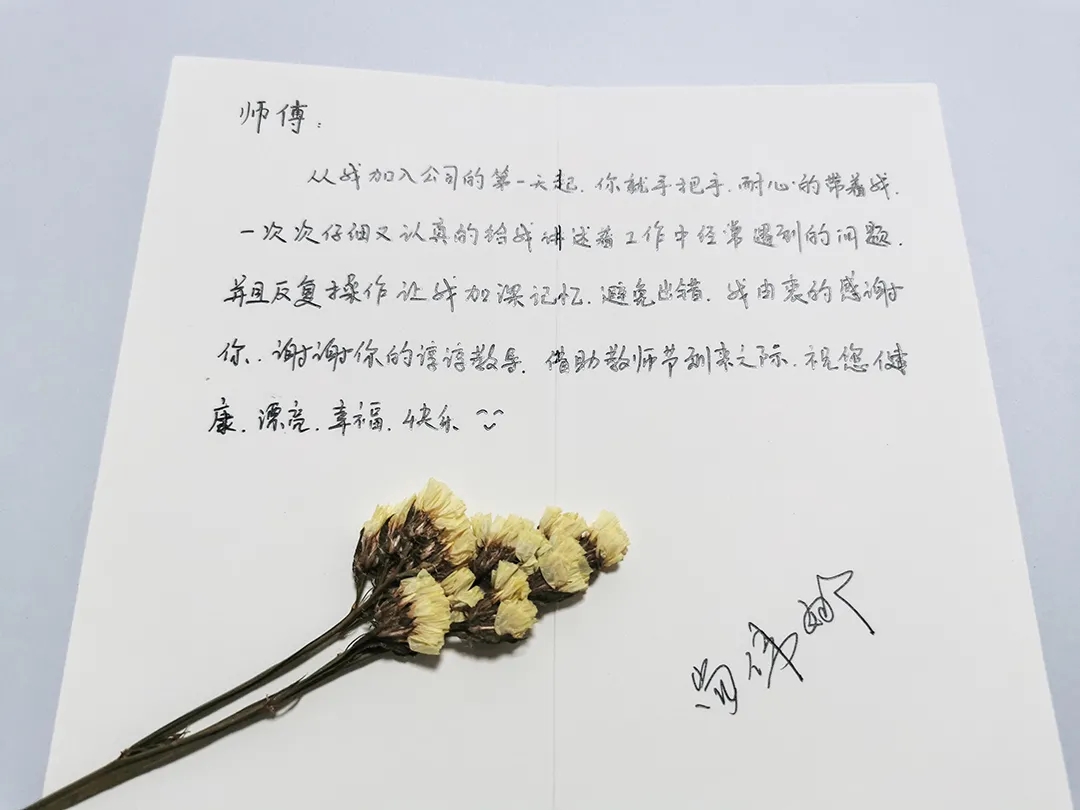 师傅：
从我加入公司的第一天起.你就手把手.耐心的带着我.
一次次仔细又认真的给我讲述着工作中经常遇到的问题.
并且反复操作让我加深记忆.避免出错.我由衷的感谢
你.谢谢你的谆谆教导.借助教师节到来之际.祝您健
康.漂亮.幸福.快乐